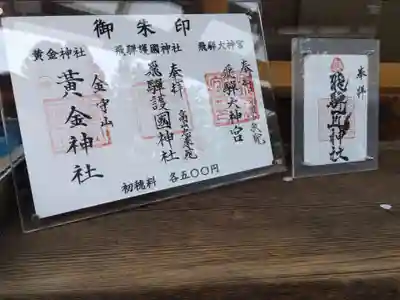 御朱印
黄金神社
飛騨護國神社
飛騨大神宮
金守山
黄金神社
奉拝
飛騨護國神社
奉拝
飛騨大神宮
初穂料 各五〇〇円
奉拝
神社